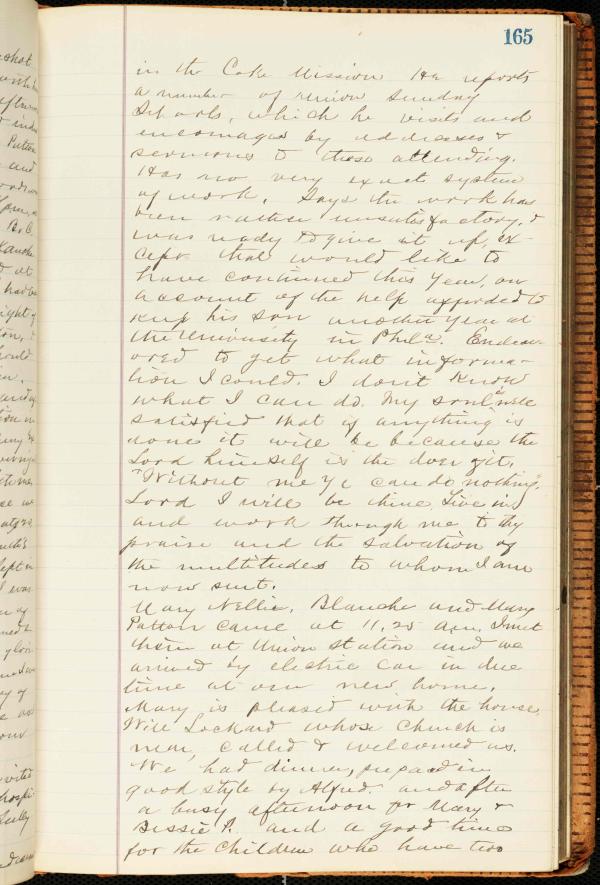 165
in the Coke Mission He reports
a number of union Sunday
Schools, which he visits and
encourages by addresses &
sermons to those attending.
Has no very exact system
of work. Says the work has
been rather unsatisfactory, &
was ready to give it up, ex-
cept that would like to
have continued this year, on
account of the help afforded to
keep his son another year at
the University in Phila. Endeav
ored to get what informa-
tion I could. I don't know
what I can do. My soul is well
satisfied that if anything is
done it will be because the
Lord himself is the doer of it.
"Without me ye can do nothing".
Lord I will be thine. Live in
and work through me to thy
praise and the salvation of
the multitudes to whom I am
now sent.
Mary Nellie, Blanche and Mary
Patton came at 11.25 a.m. I met
them at Union Station and we
arrived by electric car in due
time at our new home.
Mary is pleased with the house.
Will Lockard whose church is
near, called & welcomed us.
We had dinner, prepared in
good style by Alfred and after
a busy afternoon for Mary &
Bessie P. and a good time
for the children who have two